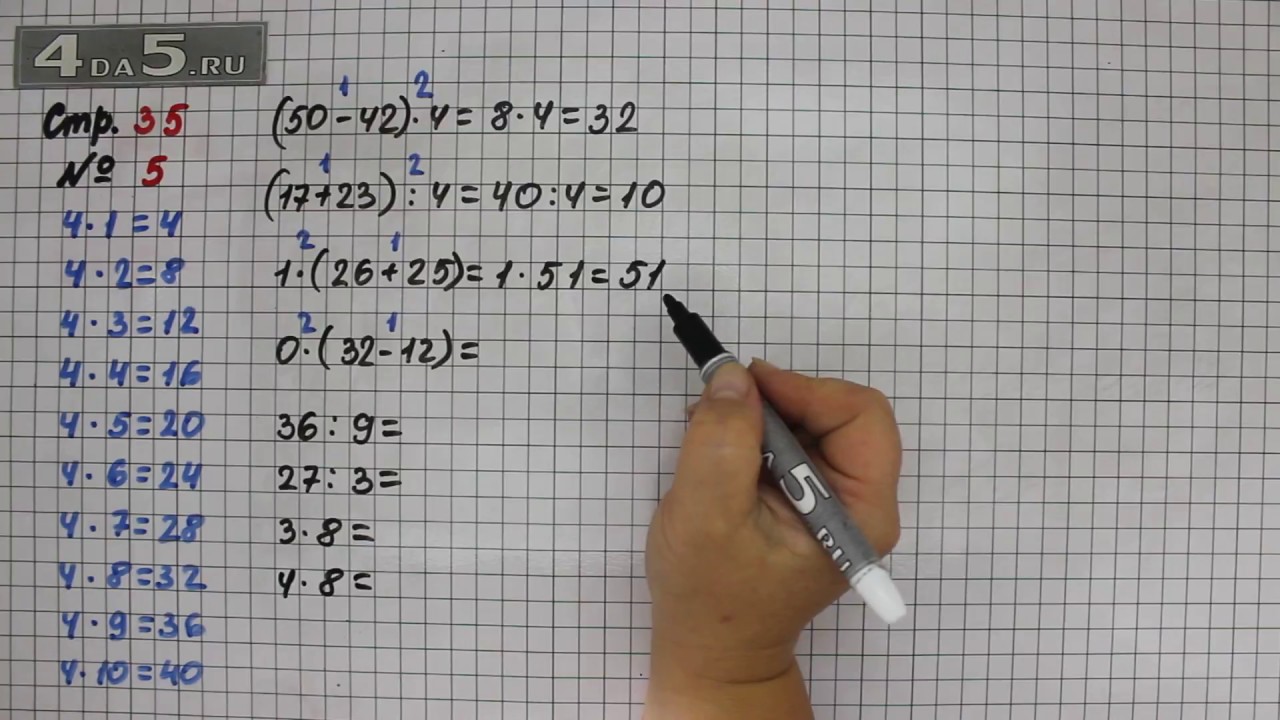 4DA5.RU
Стр. 35
№ 5
4·1=4
4·2=8
4·3=12
4·4=16
4·5=20
4·6=24
4·7=28
4·8=32
4·9=36
4·10=40
1 2
(50-42)·4=8·4=32
1 2
(17+23):4=40:4=10
2 1
1·(26+25)=1·51=51
2 1
0·(32-12)=
36:9=
27:3=
3·8=
4·8=
А 5 RU